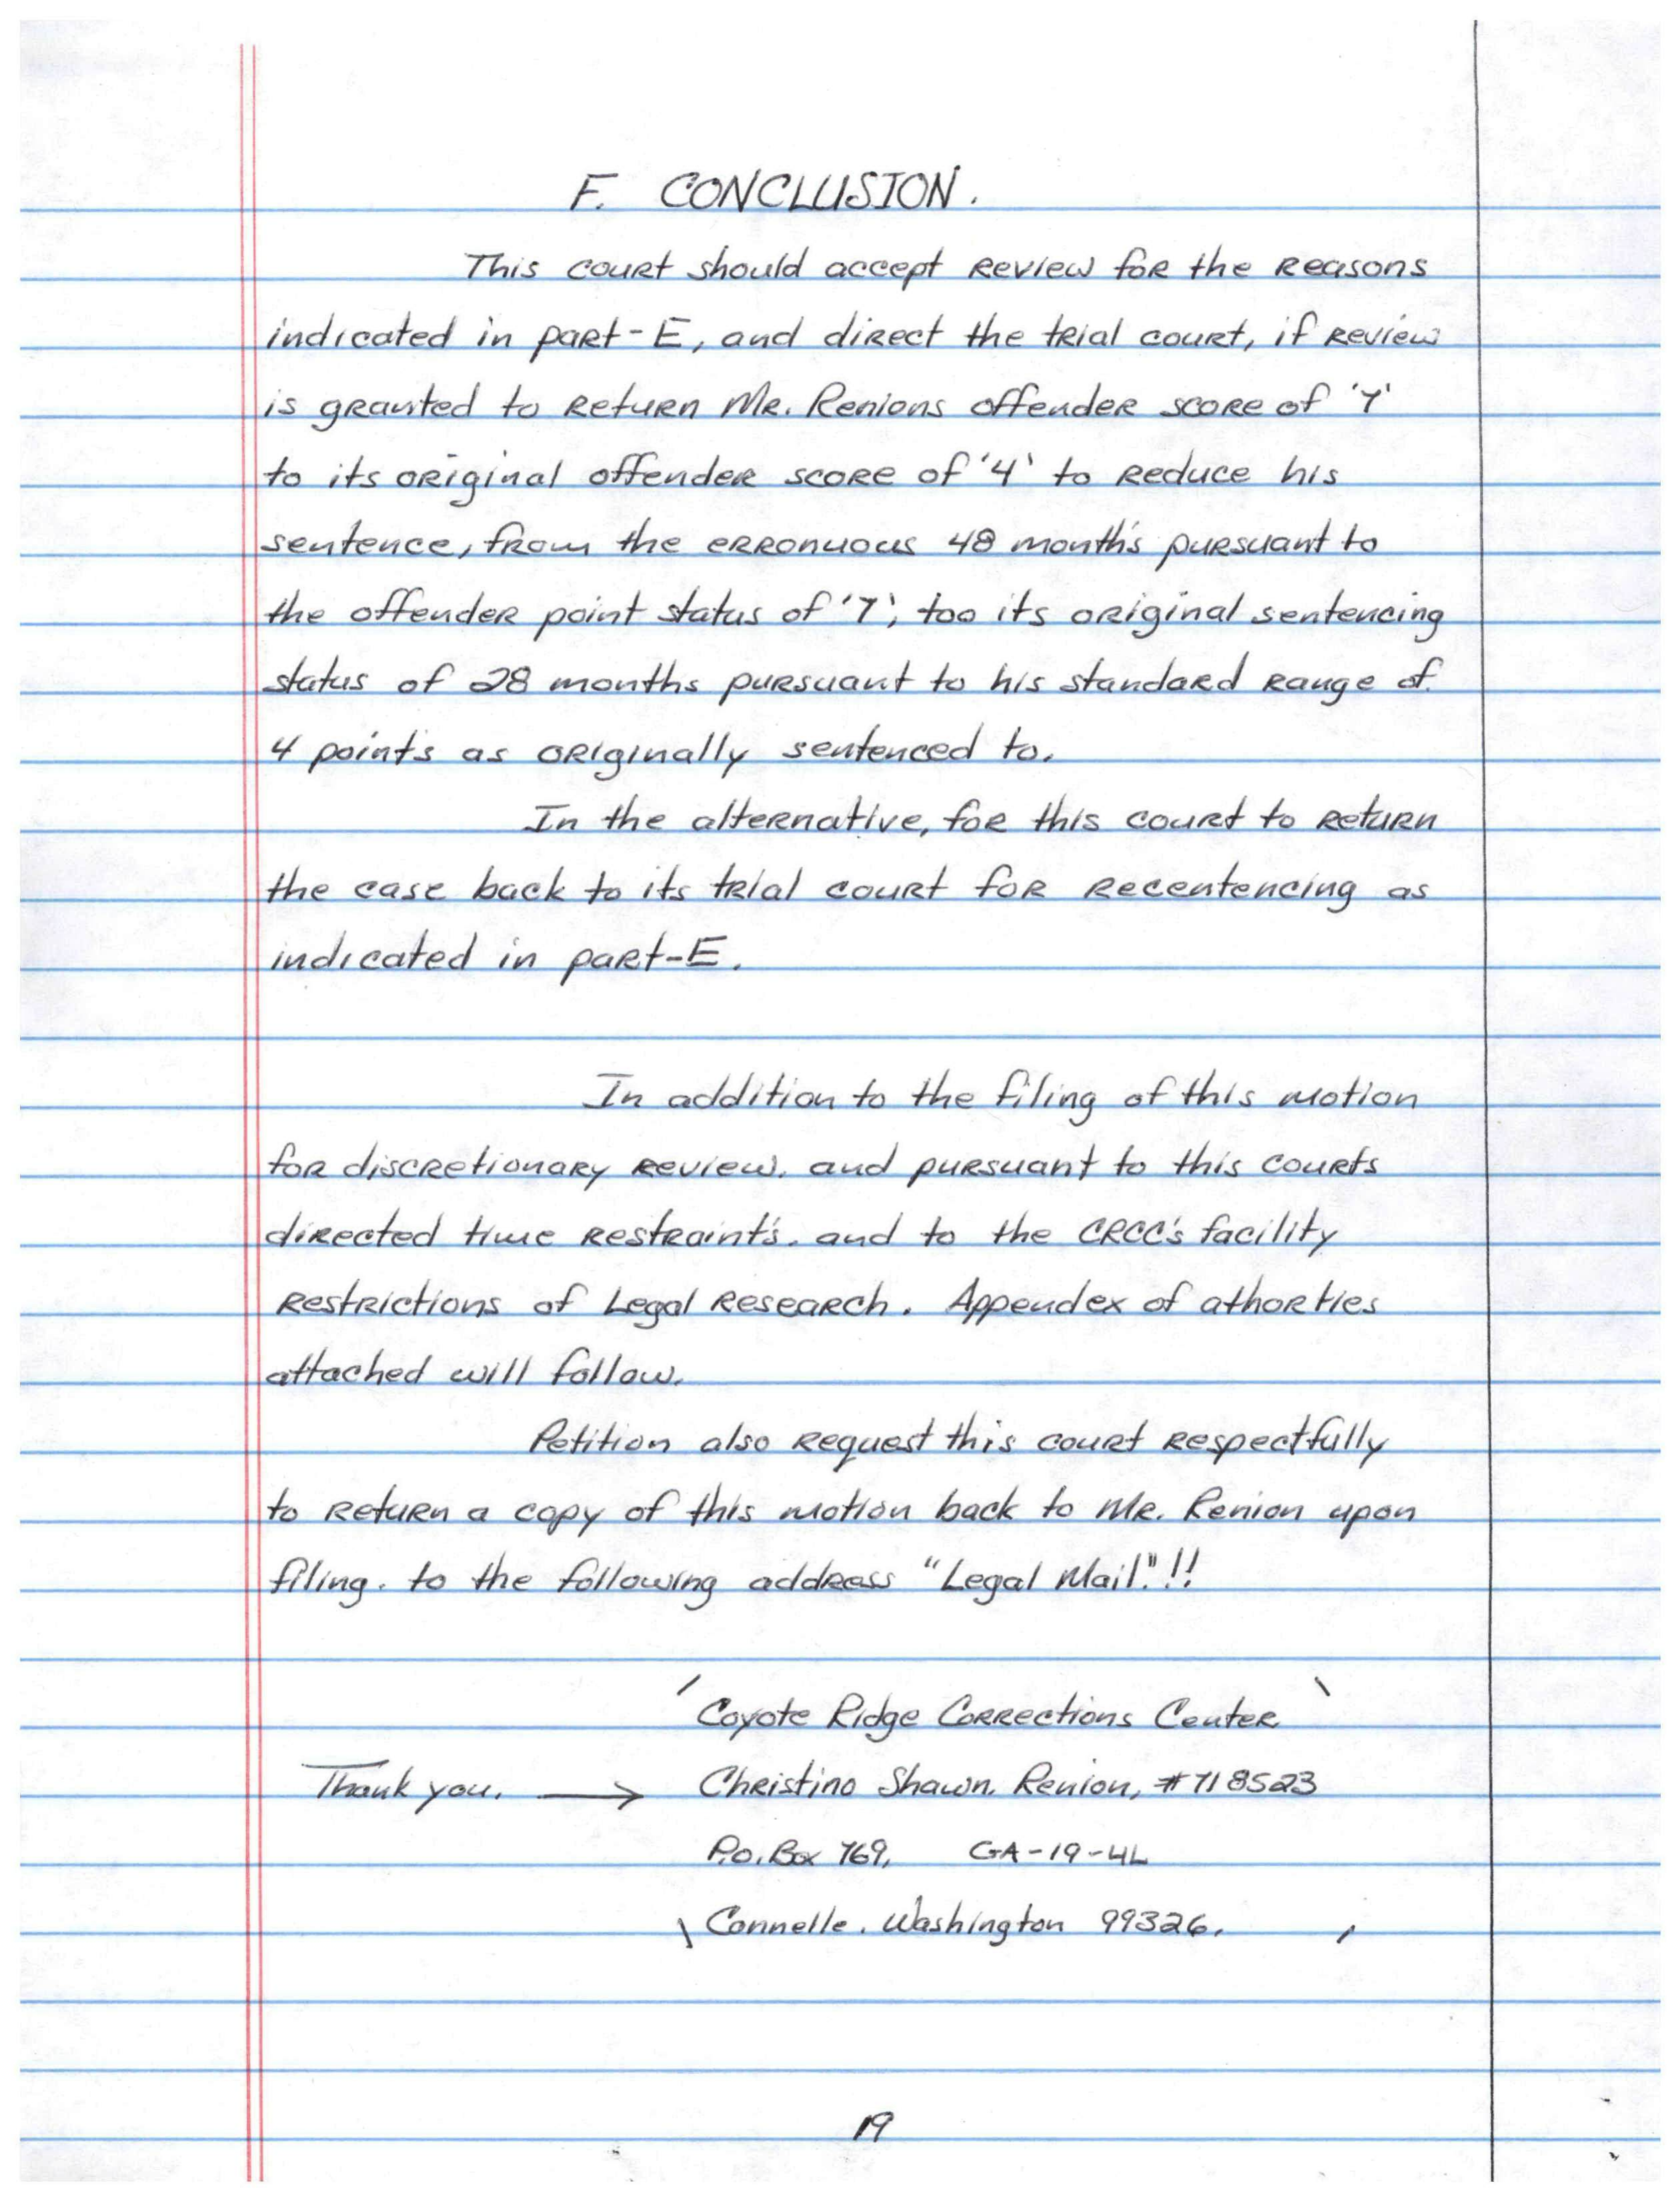 F. CONCLUSION.
This court should accept review for the reasons
indicated in part-E, and direct the trial court, if review
is granted to return Mr. Renions offender score of '7'
to its original offender score of '4' to reduce his
sentence, from the erronuous 48 month's pursuant to
the offender point status of '7', too its original sentencing
status of 28 months pursuant to his standard range of
4 point's as originally sentenced to.
In the alternative, for this court to return
the case back to its trial court for recentencing as
indicated in part-E.
In addition to the filing of this motion
for discretionary review. and pursuant to this courts
directed time restraint's. and to the CRCC's facility
restrictions of Legal research. Appendex of athorties
attached will follow.
Petition also request this court respectfully
to return a copy of this motion back to Mr. Renion upon
filing. to the following address "Legal Mail."!!
Coyote Ridge Corrections Center
Thank you. → Christino Shawn. Renion, #718523
P.O. Box 769, GA-19-4L
Connelle. Washington 99326.
19